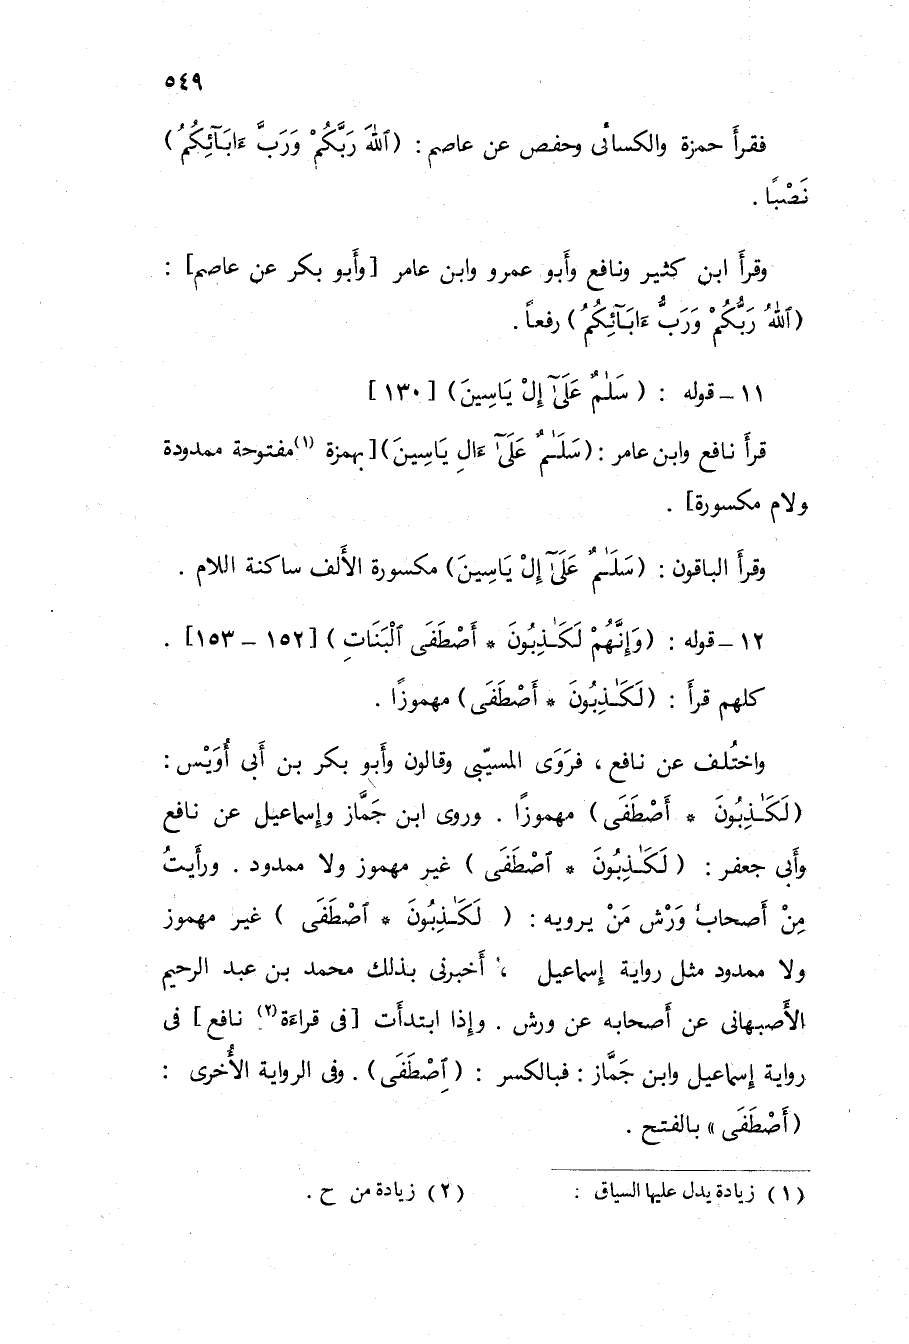 ٥٤٩
فقرأ حمزة والكسائى وحفص عن عاصم : (ٱللَّهَ رَبَّكُمْ وَرَبَّ ءَابَآئِكُمُ)
نَصْبًا .
وقرأ ابن كثير ونافع وأَبو عمرو وابن عامر [وأَبو بكر عن عاصم] :
(ٱللَّهُ رَبُّكُمْ وَرَبُّ ءَابَآئِكُمُ) رفعاً .
١١ – قوله : (سَلَٰمٌ عَلَىٰٓ إِلْ يَاسِينَ) [١٣٠]
قرأَ نافع وابن عامر : (سَلَٰمٌ عَلَىٰٓ ءَالِ يَاسِينَ) [بهمزة (١) مفتوحة ممدودة
ولام مكسورة] .
وقرأَ الباقون : (سَلَٰمٌ عَلَىٰٓ إِلْ يَاسِينَ) مكسورة الأَلف ساكنة اللام .
١٢ – قوله : (وَإِنَّهُمْ لَكَٰذِبُونَ * أَصْطَفَى ٱلْبَنَاتِ) [١٥٢ – ١٥٣] .
كلهم قرأَ : (لَكَٰذِبُونَ * أَصْطَفَى) مهموزًا .
واختُلف عن نافع ، فرَوَى المسيّبى وقالون وأَبو بكر بن أَبى أُوَيْس :
(لَكَٰذِبُونَ * أَصْطَفَى) مهموزًا . وروى ابن جَمَّاز وإسماعيل عن نافع
وأَبى جعفر : (لَكَٰذِبُونَ * ٱصْطَفَى) غير مهموز ولا ممدود . ورأَيتُ
مِنْ أَصحاب وَرْش مَنْ يرويه : (لَكَٰذِبُونَ * ٱصْطَفَى) غير مهموز
ولا ممدود مثل رواية إسماعيل ، أَخبرنى بذلك محمد بن عبد الرحيم
الأَصبهانى عن أَصحابه عن ورش . وإذا ابتدأَت [فى قراءَة (٢) نافع] فى
رواية إسماعيل وابن جَمَّاز : فبالكسر : (ٱِصْطَفَى) . وفى الرواية الأُخرى :
(أَصْطَفَى» بالفتح .
(١) زيادة يدل عليها السياق : (٢) زيادة من ح .